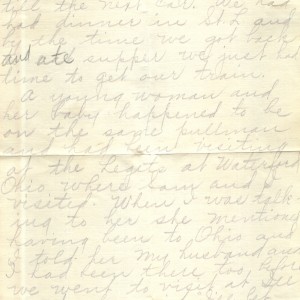 till the next car. We had
had dinner in St. L and
by the time we got back
and ate supper we just had
time to get our train.
A young woman and
her baby happened to be
on the same pullman
and had been visiting
at the Legits at Waterford
Ohio where Sam and I
visited. When I was talk-
ing to her she mentioned
having been to Ohio and
I told her my husband and
I had been there too, before
we went to visit at